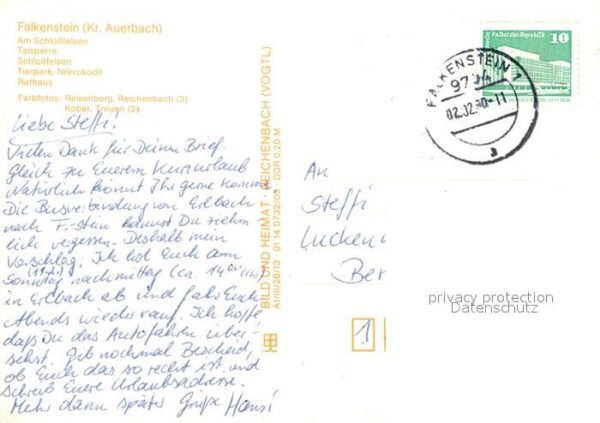 Falkenstein (Kr. Auerbach)
Am Schloßfelsen
Talsperre
Schloßfelsen
Tierpark, Nilkrokodil
Rathaus
Farbfotos: Reisenberg, Reichenbach (3)
Kober, Treuen (2)
Liebe Steffi!
Vielen Dank für Deinen Brief.
Gleich zu Eurem Kurzurlaub
Natürlich könnt Ihr gerne kommen
Die Busverbindung von Erlbach
nach F.-stein kannst Du ziem
lich vergessen. Deshalb mein
Vorschlag: Ich hol Euch am
Sonntag nachmittag (ca. 14 00 Uhr)
in Erlbach ab und fahr Euch
Abends wieder rauf. Ich hoffe
daß Du das Autofahren über-
stehst. Gib nochmal Bescheid,
ob Euch das so recht ist und
schreib Eure Urlaubsadresse.
Mehr dann später Grüße Hansi
BILD UND HEIMAT · REICHENBACH (VOGTL)
A1/III/26/13 · 01 14 0732/05 · DDR 0,20 M
Palast der Republik
10
FALKENSTEIN 1
02.02.90-11
a
An
Steffi
Lucken
Ber
privacy protection
Datenschutz
1